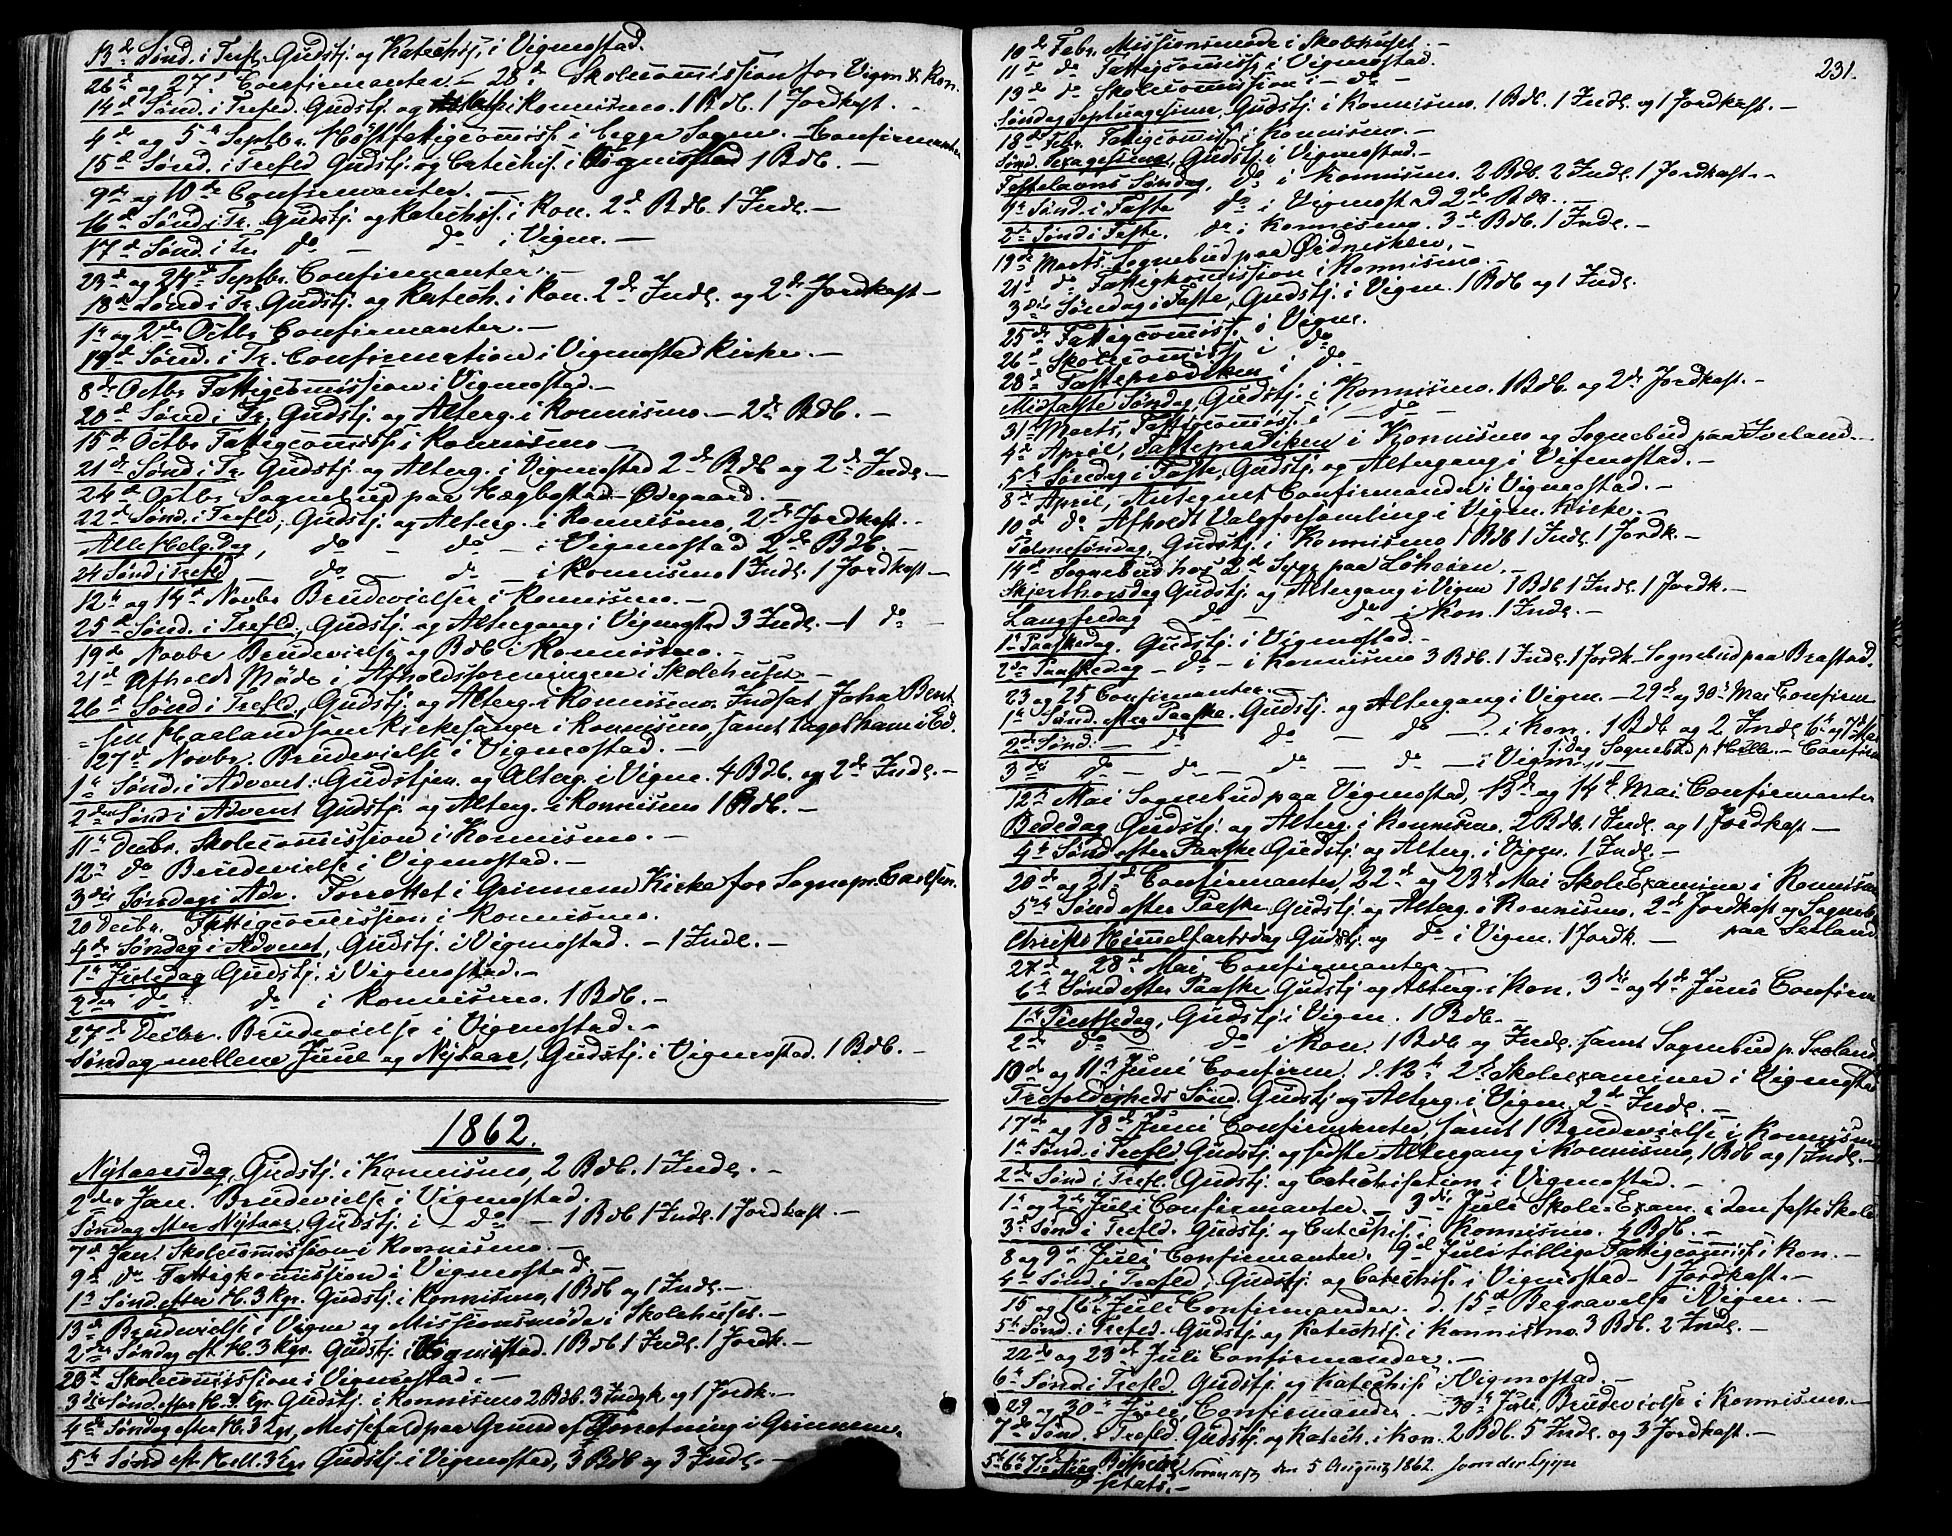 13de Sønd. i Trefl. Gudstj. og Katechis. i Vigmostad.
26de og 27de Confirmanter. – 28de Skolecomission for Vigm. & Kon.
14de Sønd. i Trefld. Gudstj. og i Konnismo. 1 Bdb. 1 Jordkast. –
4de og 5te Septbr. Höstfattigcomiss. i begge Sogne. – Confirmanter
15de Sønd. i Trefld. Gudstj. og Catechis. i Vigmostad 1 Bdb. –
9de og 10de Confirmanter. –
16de Sønd. i Tr. Gudstj. og Katechis. i Kon. 2de Bdb. 1 Indl. –
17de Sønd. i Tr. do – do i Vigm. –
23de og 24de Septbr. Confirmanter. –
18de Sønd. i Tr. Gudstj. og Katech. i Kon. 2de Indl. og 2de Jordkast –
1te og 2de Octbr. Confirmanter. –
19de Sønd. i Tr. Confirmation i Vigmostad Kirke. –
8de Octbr Fattigcomission i Vigmostad. –
20de Sønd. i Tr. Gudstj. og Alterg. i Konnismo. – 2de Bdb. –
15de Octbr Fattigcomiss. i Konnismo –
21de Sønd. i Tr. Gudstj. og Alterg. i Vigmostad 2de Bdb og 2de Indl. –
24de Octbr Sognebud paa Hægbostad-Ødegaard. –
22de Sønd. i Trefld, Gudstj. og Alterg. i Konnismo, 2de Jordkast. –
Alle Helg. dag, do – do – i Vigmostad 2de Bdb. –
24 Sønd. i Trefld do – do – i Konnismo 1 Indl. 1 Jordkast –
12te og 14de Novbr Brudevielser i Konnismo. –
25de Sønd. i Trefld., Gudstj. og Altergang i Vigmostad 3 Indl. – 1 do –
19de Novbr Brudevielse og Bdb i Konnismo. –
21de Afholdt Møde i Afholdsforeningen i Skolehuset –
26de Sønd. i Trefld., Gudstj. og Alterg. i Konnismo. Indsat John Bent
= sen Haaland som Kirkesanger i Konnismo, samt taget ham i Ed.
27de Novbr. Brudevielse i Vigmostad. –
1te Sønd. i Advent. Gudstjen. og Alterg. i Vigm. 4 Bdb. og 2de Indl. –
2den Sønd i Advent Gudstj. og Alterg. i Konnismo 1 Bdb. –
11te Decbr. Skolecomission i Konnismo. –
12te do Brudevielse i Vigmostad. –
3die Søndag i Adv. Forrettet i Grinnem Kirke for Sognepr. Carlsen.
20 Decbr. Fattigcomission i Konnismo.
4de Søndag i Advent, Gudstj. i Vigmostad. – 1 Indl. –
1te Juledag Gudstj. i Vigmostad. –
2den do do i Konnismo. 1 Bdb. –
27de Decbr. Brudevielse i Vigmostad. –
Søndag mellem Juul og Nytaar, Gudstj. i Vigmostad. 1 Bdb. –
1862.
Nytaarsdag, Gudstj. i Konnismo, 2 Bdb. 1 Indl. –
2den Jan. Brudevielse i Vigmostad.
Søndag efter Nytaar Gudstj. i – do – 1 Bdb 1 Indl. 1 Jordkast. –
7de Jan. Skolecomission i Konnismo. –
9de do Fattigkomission i Vigmostad. –
1te Sønd. efter H. 3 Kgr. Gudstj. i Konnismo, 1 Bdb og 1 Indl. –
13de Brudevielse i Vigm og Missionsmøde i Skolehuset. –
2den Søndag eft. H. 3 Kgr. Gudstj. i Vigmostad. 1 Bdb 1 Indl. 1 Jordk. –
23de Skolecomission i Vigmostad. –
3die Sønd. efter H. 3. Kgr Gudstj. i Konnismo 2 Bdb. 3 Indgk og 1 Jordk. –
4de Søndag efter H. 3 Kgr, Messefald paa Grund af Forretning i Grinnem.
5te Sønd eft. Hell. 3 Kgr Gudstj. i Vigmostad, 3 Bdb og 3 Indl. –
231.
10de Febr. Missionsmøde i Skolehuset. –
11te do Fattigcomiss. i Vigmostad.
19de do Skolecomission i – do –
Søndag Septuagesima, Gudstj. i Konnismo. 1 Bdb. 1 Indl. og 1 Jordkast. –
18de Febr. Fattigcomiss. i Konnismo. –
Sønd. Sexagesima, Gudstj. i Vigmostad. –
Fastelavns Søndag, do i Konnismo. 2 Bdb. 2 Indl. 1 Jordkast. –
1te Sønd. i Faste do i Vigmostad 2de Bdb. –
2de Sønd i Faste. do i Konnismo. 3de Bdb. 1 Indl. –
19de Marts. Sognebud paa Øidnesheien. –
21de do Fattigkomission i Konnismo. –
3die Søndag i Faste, Gudstj. i Vigm. 1 Bdb og 1 Indl.
25de Fattigcomiss. i Vigm.
26de Skolecomiss. i do
28de Fasteprædiken i do –
Midfaste Søndag Gudstj. i Konnismo. 1 Bdb. og 2de Jordkast. –
31te Marts, Fattigcomiss. i – do –
4de April, Fasteprædiken i Konnismo og Sognebud paa Iveland. –
5te Søndag i Faste, Gudstj. og Altergang i Vigmostad. –
8de April, Antegnet Confirmander i Vigmostad. –
10de do Afholdt Valgforsamling i Vigm. Kirke. –
Palmesøndag, Gudstj. i Konnismo 1 Bdb 1 Indl. 1 Jordk. –
14de Sognebud hos 2de Syge paa Løheien. –
Skjærthorsdag Gudstj. og Altergang i Vigm 1 Bdb 1 Indl. 1 Jordk. –
Langfredag do – do i Kon. 1 Indl. –
1te Paaskedag. Gudstj. i Vigmostad. –
2den Paaskedag – do – i Konnismo 3 Bdb. 1 Indl. 1 Jordk – Sognebud paa Brastad.
23 og 25 Confirmanter. –
1te Sønd. efter Paaske. Gudstj. og Altergang i Vigm. – 29de og 30te Mai Confirm
2den Sønd. – do – do – do – i Kon. 1 Bdb og 2 Indl 6te og 7de Mai
S. dag Sognebud p. Helle. – Confirm
3die do – do – do – do – i Vigm. –
12te Mai Sognebud paa Vigmostad, 13de og 14de Mai Confirmanter
Bededag Gudstj. og Alterg. i Konnismo. 2 Bdb. 1 Indl. og 1 Jordkast –
4de Sønd efter Paaske Gudstj. og Alterg. i Vigm. 1 Indl. –
20de og 21de Confirmanter, 22de og 23de Mai SkoleExamina i Konnismo
5te Sønd efter Paaske Gudstj. og Alterg. i Konnismo. 2de Jordkast og Sogneb.
paa Seeland
Christi Himmelfartsdag Gudstj. og do i Vigm. 1 Jordk. –
27de og 28de Mai, Confirmanter –
6te Sønd efter Paaske Gudstj og Alterg. i Kon. 3die og 4de Juni Confirm
1te Pintsedag, Gudstj. i Vigm. 1 Bdb. –
2den do – do i Kon. 1 Bdb og Indl. samt Sognebud p. Seeland
10de og 11te Juni Confirm. d. 12te 2de Skoleexaminer i Vigmostad
Trefoldigheds Sønd. Gudstj og Alterg. i Vigm. 2de Indl. –
17de og 18de Juni Confirmanter, samt 1 Brudevielse i Konnismo
1te Sønd. i Trefld Gudstj. og sidste Altergang i Konnismo, 1 Bdb og 1 Indl. –
2den Sønd i Trefl. Gudstj. og Catechisation i Vigmostad. –
1te og 2den Juli Confirmanter. – 3die Juli Skole-Exam. i den faste Skole
3die Sønd. i Trefld. Gudstj. og Catechis. i Konnismo. 4 Bdb. –
8 og 9de Juli Confirmanter. 9de Juli tillige Fattigcomiss. i Kon. –
4de Sønd. i Trefld. Gudstj. og Catechis. i Vigmostad – 1 Jordkast. –
15 og 16de Juli Confirmander. d. 15de Begravelse i Vigm. –
5te Sønd. i Trefld. Gudstj. og Katechis. i Konnismo 3 Bdb. 2 Indl. –
22de og 23de Juli Confirmander. –
6te Sønd i Trefld Gudstj. og Katechis. i Vigmostad. –
29 og 30te Juli, Confirmander. – 30te Juli, Brudevielse i Konnismo. –
7de Sønd. i Trefld. Gudstj. og Katech. i Kon. 2 Bdb. 5 Indl. og 3 Jordkast. –
5te 6te 7de Aug. Bispevisitats. – den 5 August 1862.